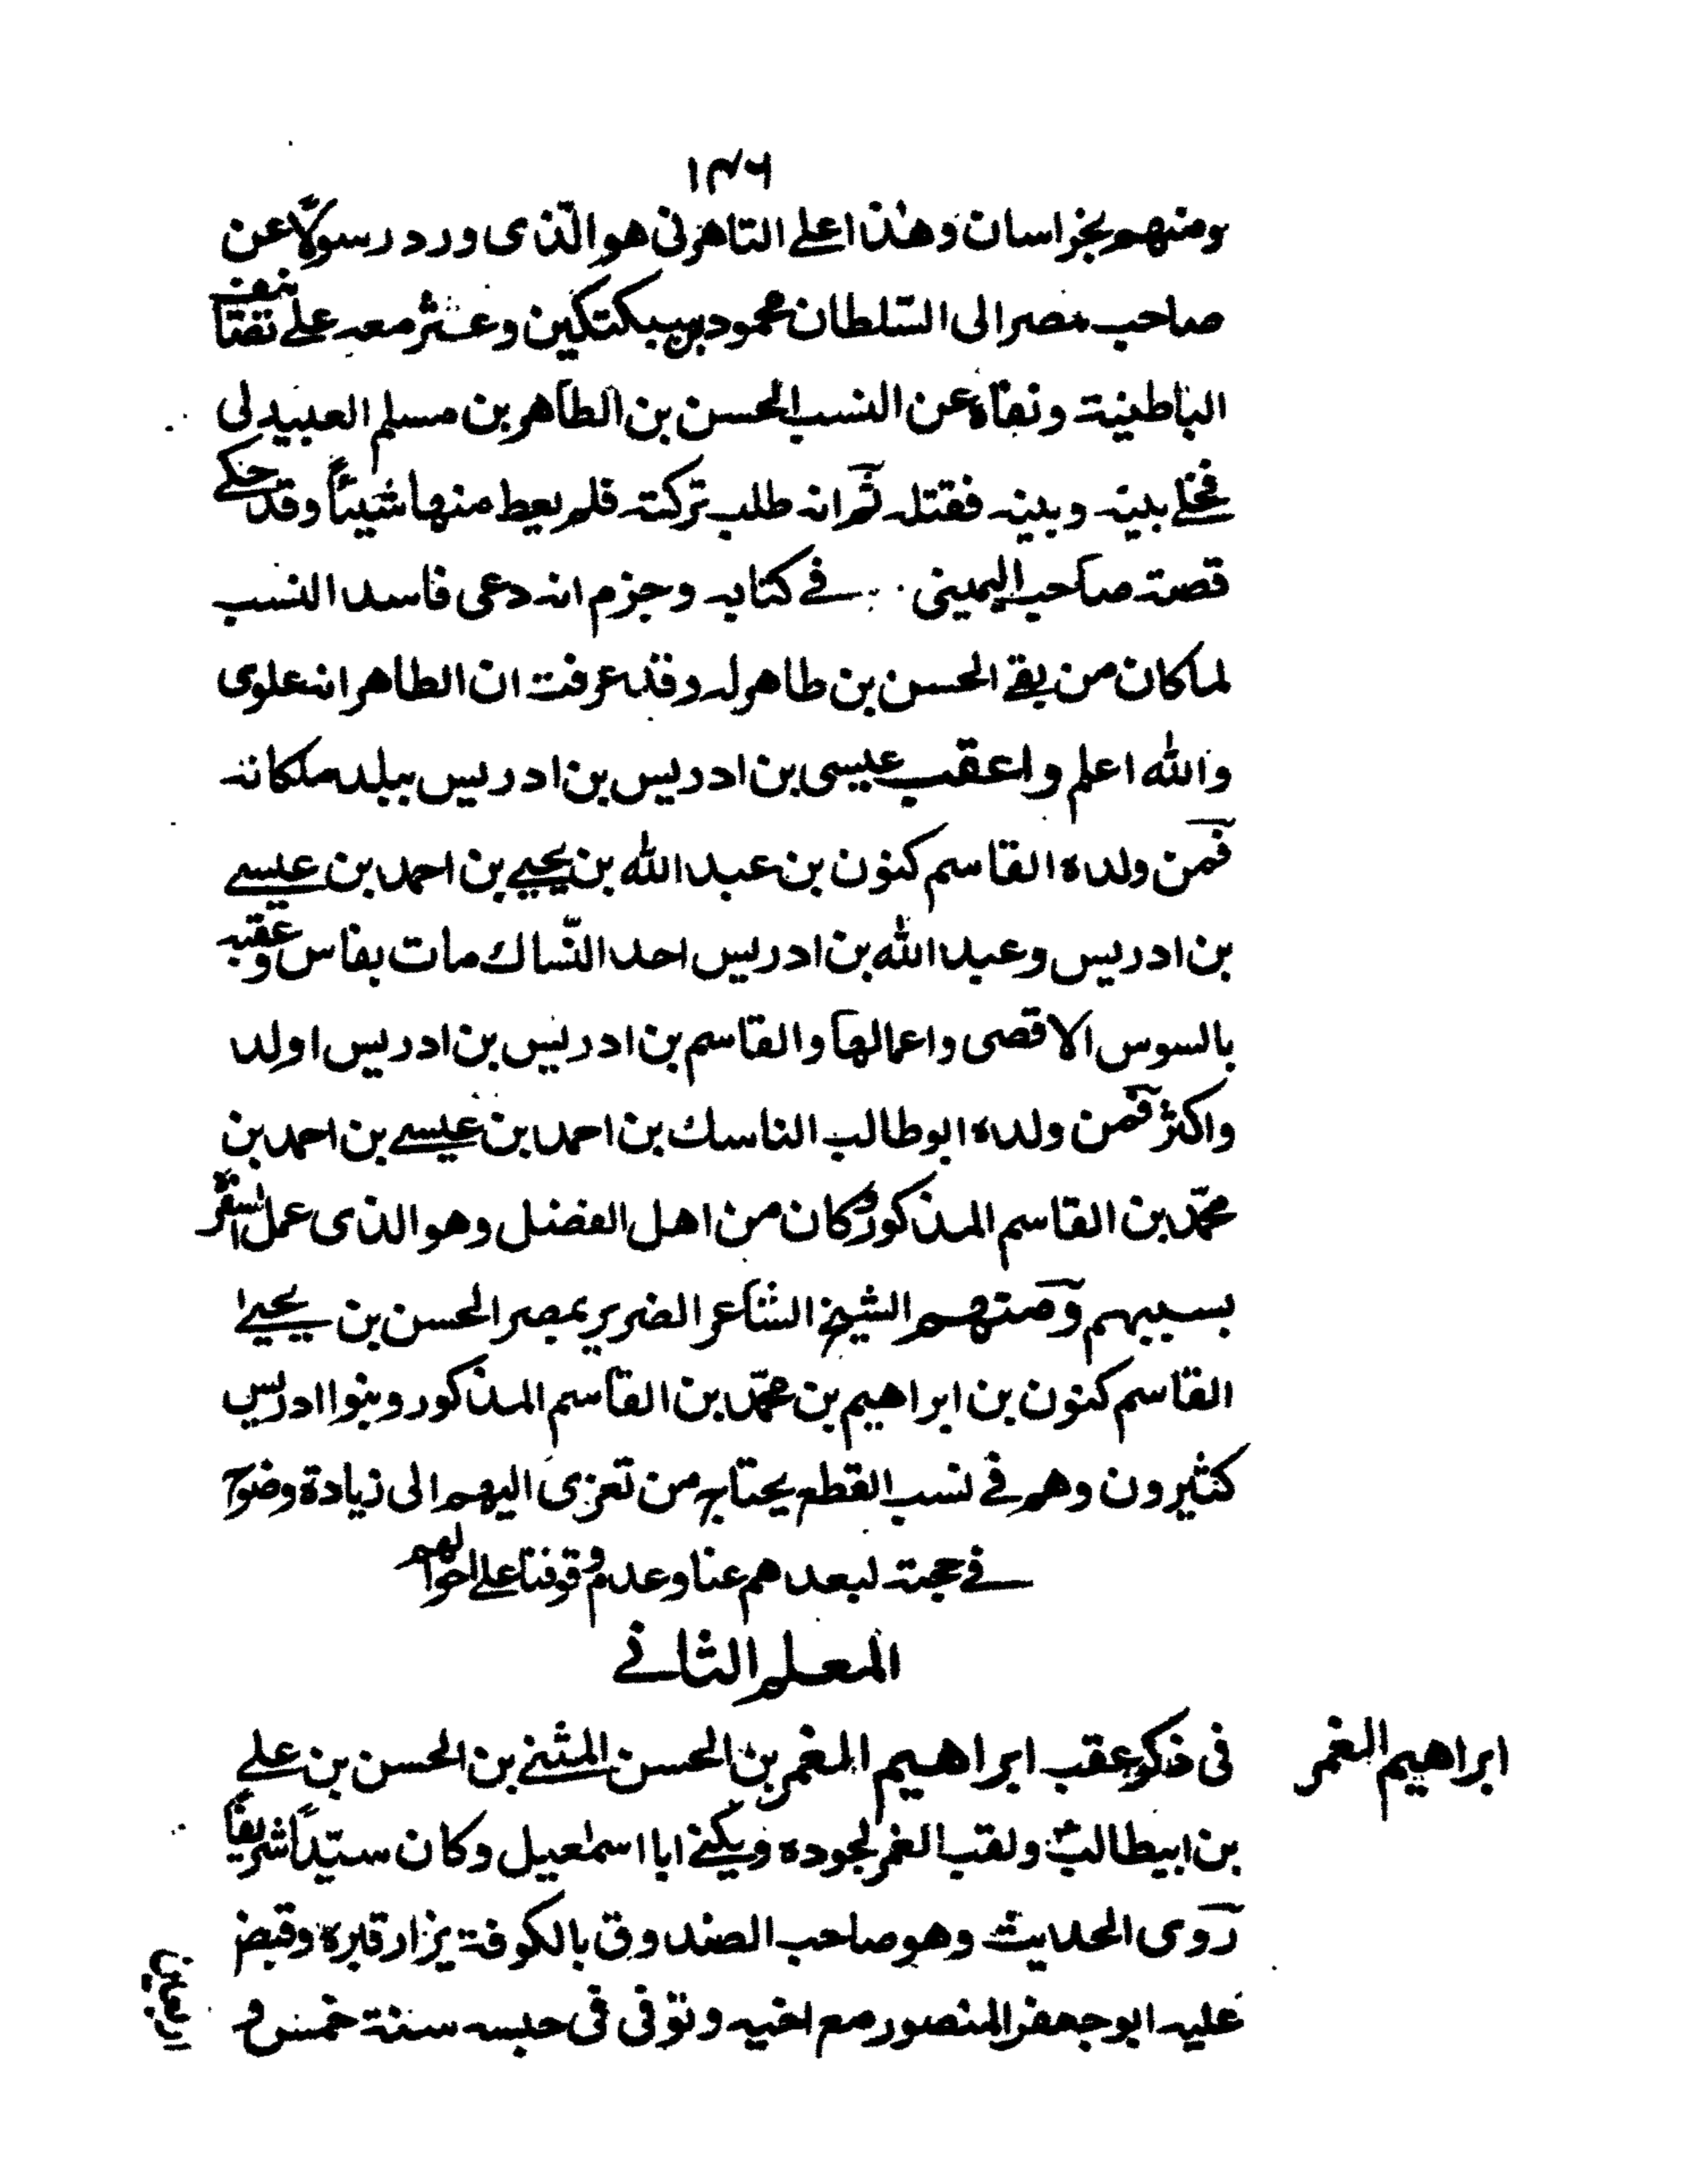 ١٣٦
ومنهم بخراسان وهذا على التاهرتى هو الّذى ورد رسولًا عن
صاحب مصر الى السّلطان محمود بن سبكتكين وعثر معه على تصنيف
الباطنية ونفاه عن النسب الحسن بن الطاهر بن مسلم العبيدلى
فخلى بينه وبينه فقتله ثم انه طلب تركته فلم يعط منها شيئاً وقد حكى
قصته صاحب اليمينى فے كتابه وجزم انه دعى فاسد النسب
لما كان من بقے الحسن بن طاهر له وقد عرفت ان الطاهر انه علوى
والله اعلم واعقب عيسى بن ادريس بن ادريس ببلد ملكانه
فمن ولده القاسم كنون بن عبد الله بن يحيے بن احمد بن عيسے
بن ادريس وعبد الله بن ادريس احد النّساك مات بفاس وعقبه
بالسوس الاقصى واعمالها والقاسم بن ادريس بن ادريس اولد
واكثر فمن ولده ابو طالب الناسك بن احمد بن عيسے بن احمد بن
محمّد بن القاسم المذكور وكان من اهل الفضل وهو الذى عمل
بسببهم ومنهم الشيخ الشاعر الضرير بمصر الحسن بن يحيے
القاسم كنون بن ابراهيم بن محمّد بن القاسم المذكور وبنوا ادريس
كثيرون وهم فے نسب القطع يحتاج من تعزى اليهم الى زيادة وضوح
فے حجته لبعدهم عنا وعدم وقوفنا على احوالهم
المعلم الثانے
فى ذكر عقب ابراهيم الغمر بن الحسن المثنے بن الحسن بن علے
ابراهيم الغمر
بن ابيطالبؑ ولقب الغمر لجوده ويكنے ابا اسمٰعيل وكان سيّداً شريفاً
روى الحديث وهو صاحب الصندوق بالكوفة يزار قبره وقبض
عليه ابو جعفر المنصور مع اخيه وتوفى فى حبسه سنة خمس و
اربعين